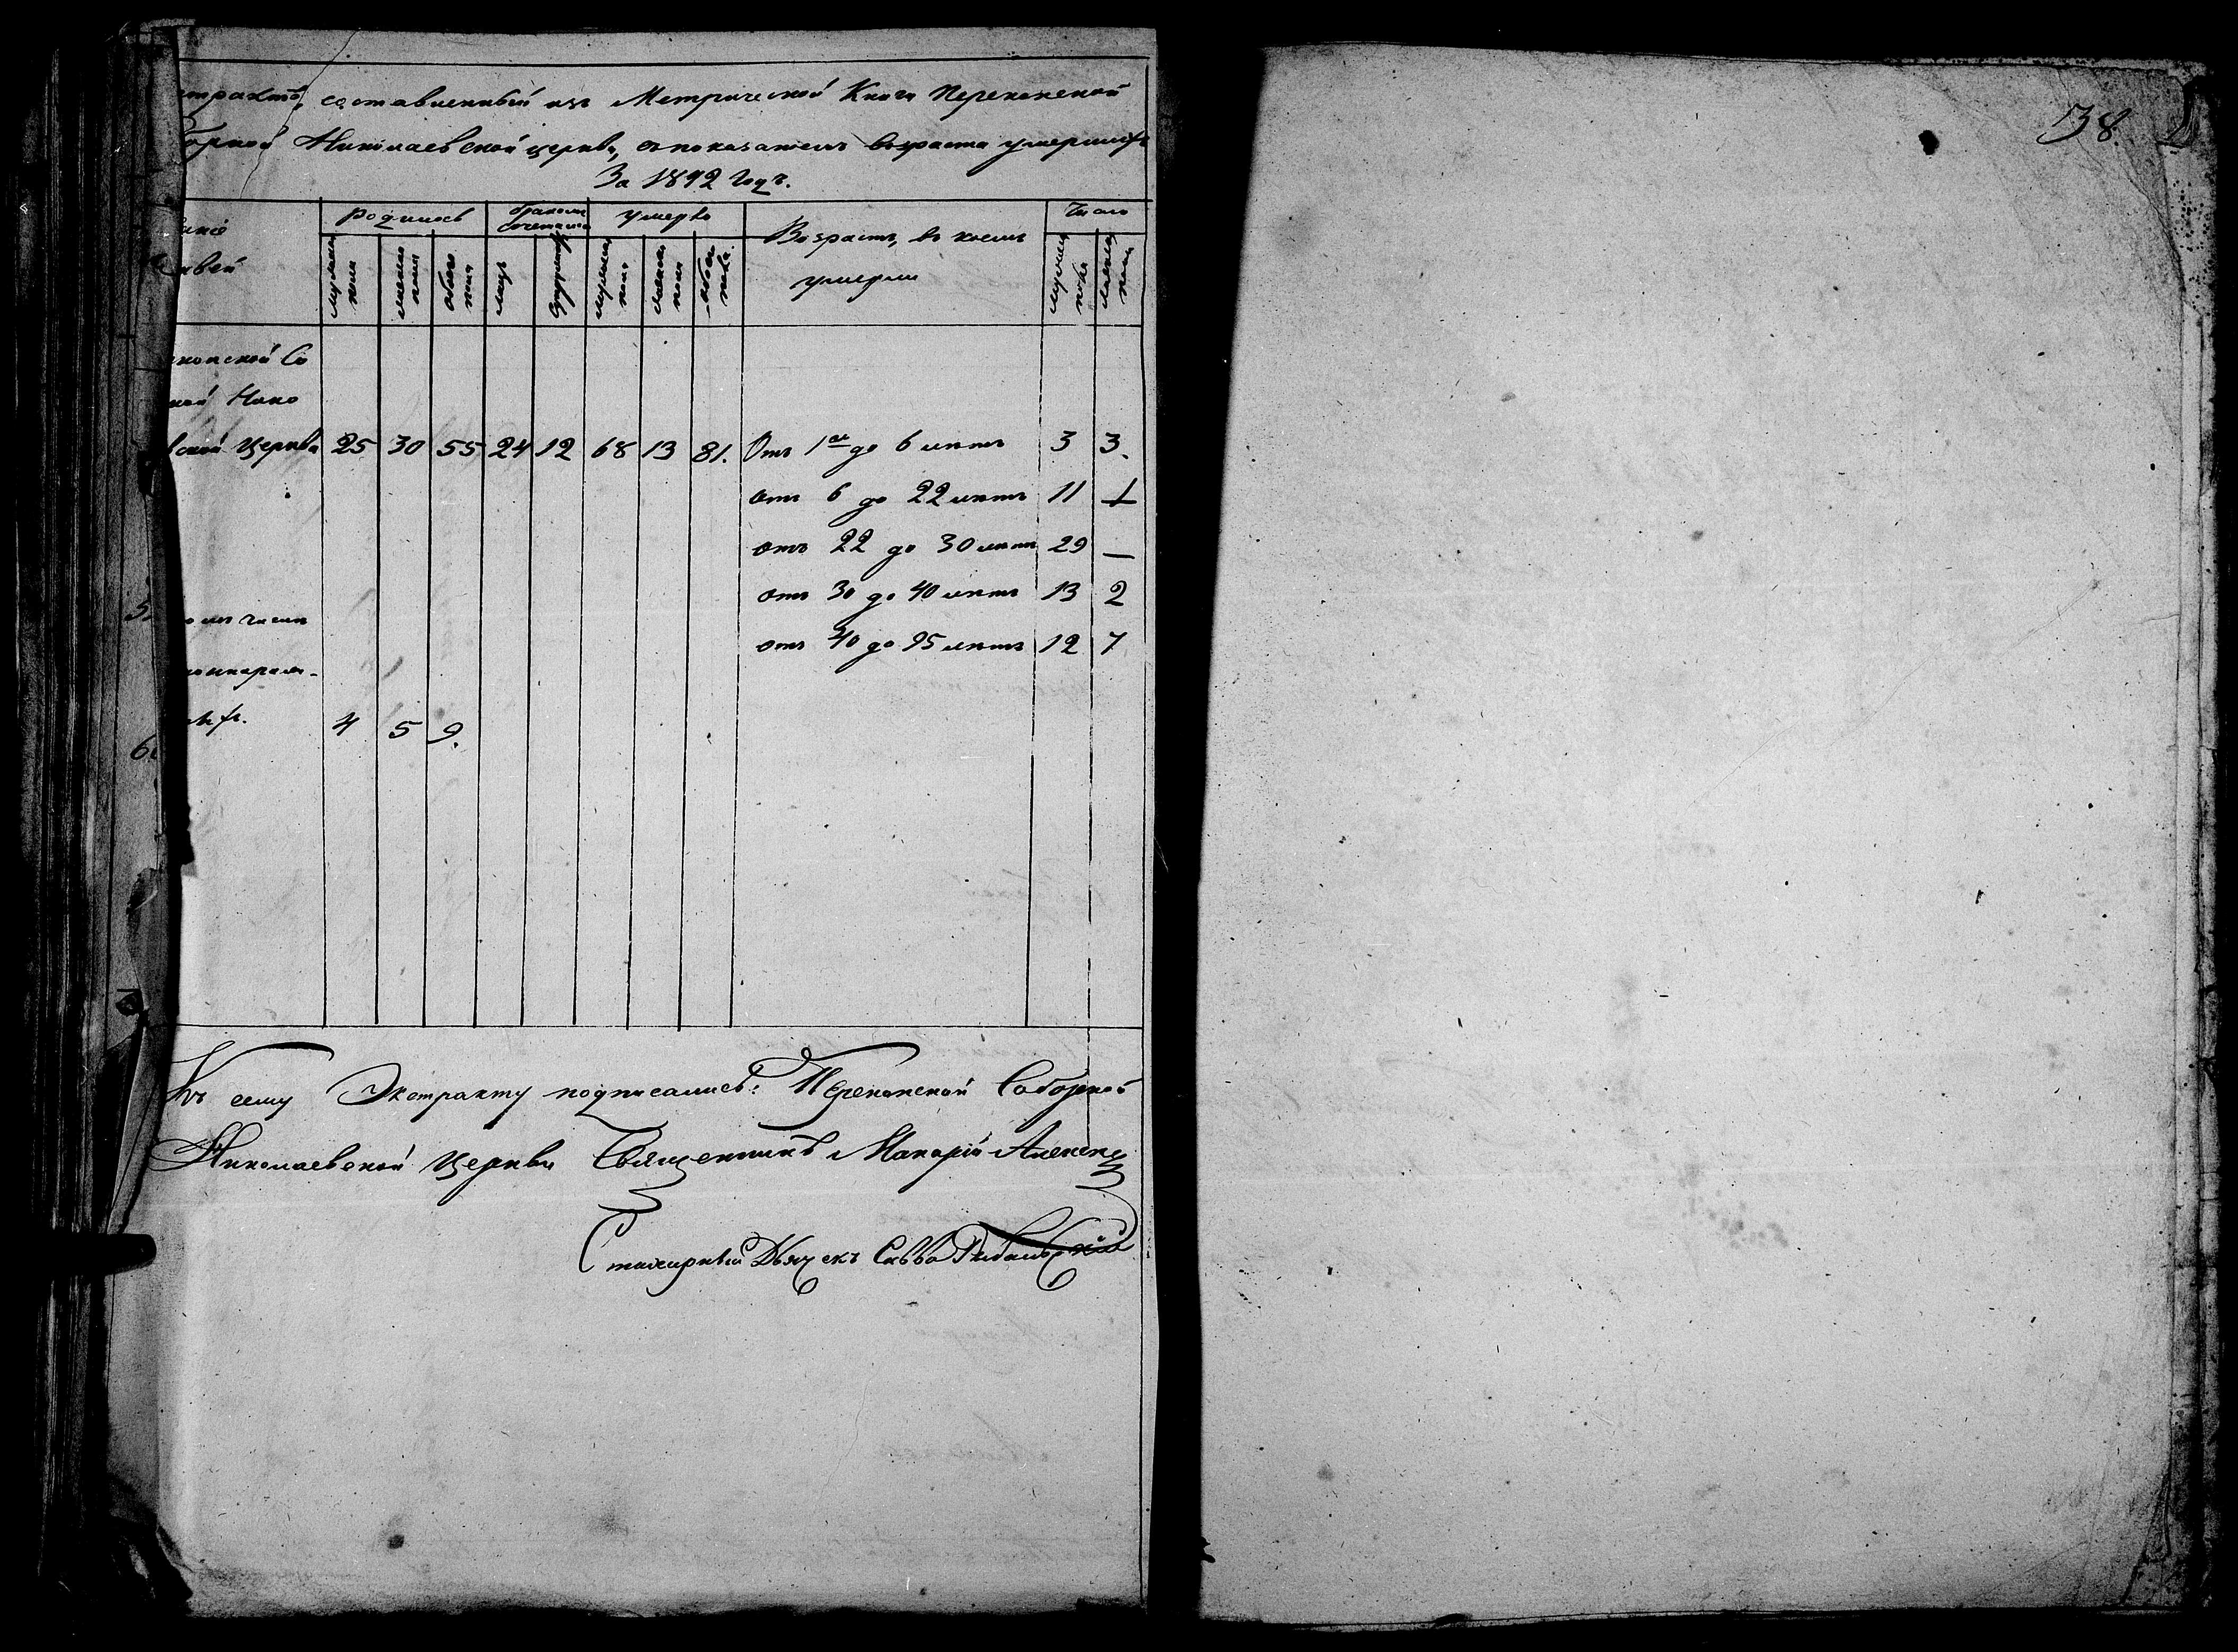 страктъ, составленный изъ Метрической Книги Перекопской
борной Николаевской церкви, съ показаніемъ возраста умершихъ
За 1892 годъ.
родилось бракомъ сочетались умерло Возрастъ, въ коемъ умерли Число
мужеска пола женска пола обоего пола лицъ супружествъ мужеска пола женска пола обоего пола мужеска пола женска пола
копской Со
ной Нико
вской Церкви 25 30 55 24 12 68 13 81. Отъ 1го до 6 летъ 3 3.
отъ 6 до 22 летъ 11 1
отъ 22 до 30 летъ 29 —
отъ 30 до 40 летъ 13 2
отъ 40 до 95 летъ 12 7
омъ числе
4 5 9.
Къ сему Экстракту подписались: Перекопской Соборной
Николаевской Церкви Священникъ Макарій
Стихарный Дьячекъ Савва
38.